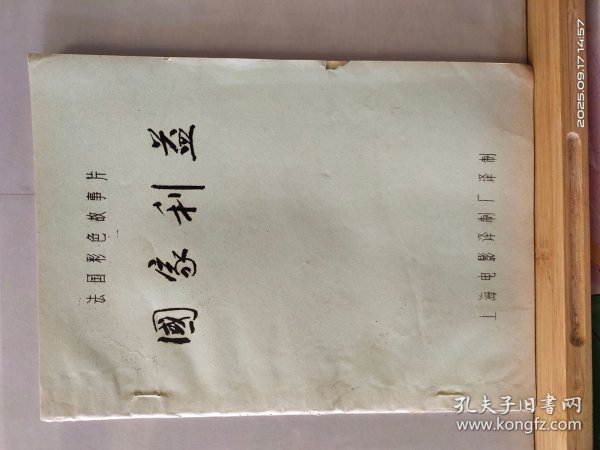 法国彩色故事片
國家利益
上海电影译制厂译制
2025.09.17 14:57
孔夫子旧书网
www.kongfz.com